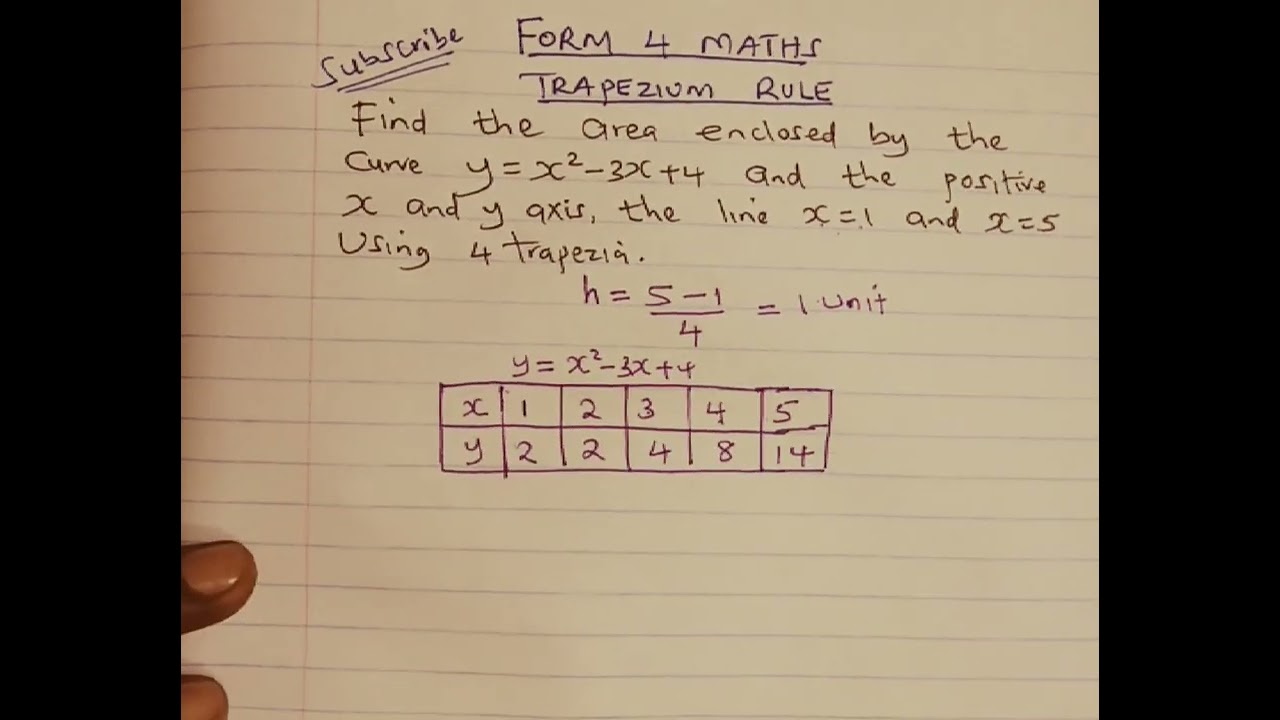 Subscribe
FORM 4 MATHS
TRAPEZIUM RULE
Find the area enclosed by the
Curve y = x² - 3x + 4 and the positive
x and y axis, the line x = 1 and x = 5
Using 4 trapezia.
h = (5 - 1)/4 = 1 unit
y = x² - 3x + 4
x 1 2 3 4 5
y 2 2 4 8 14